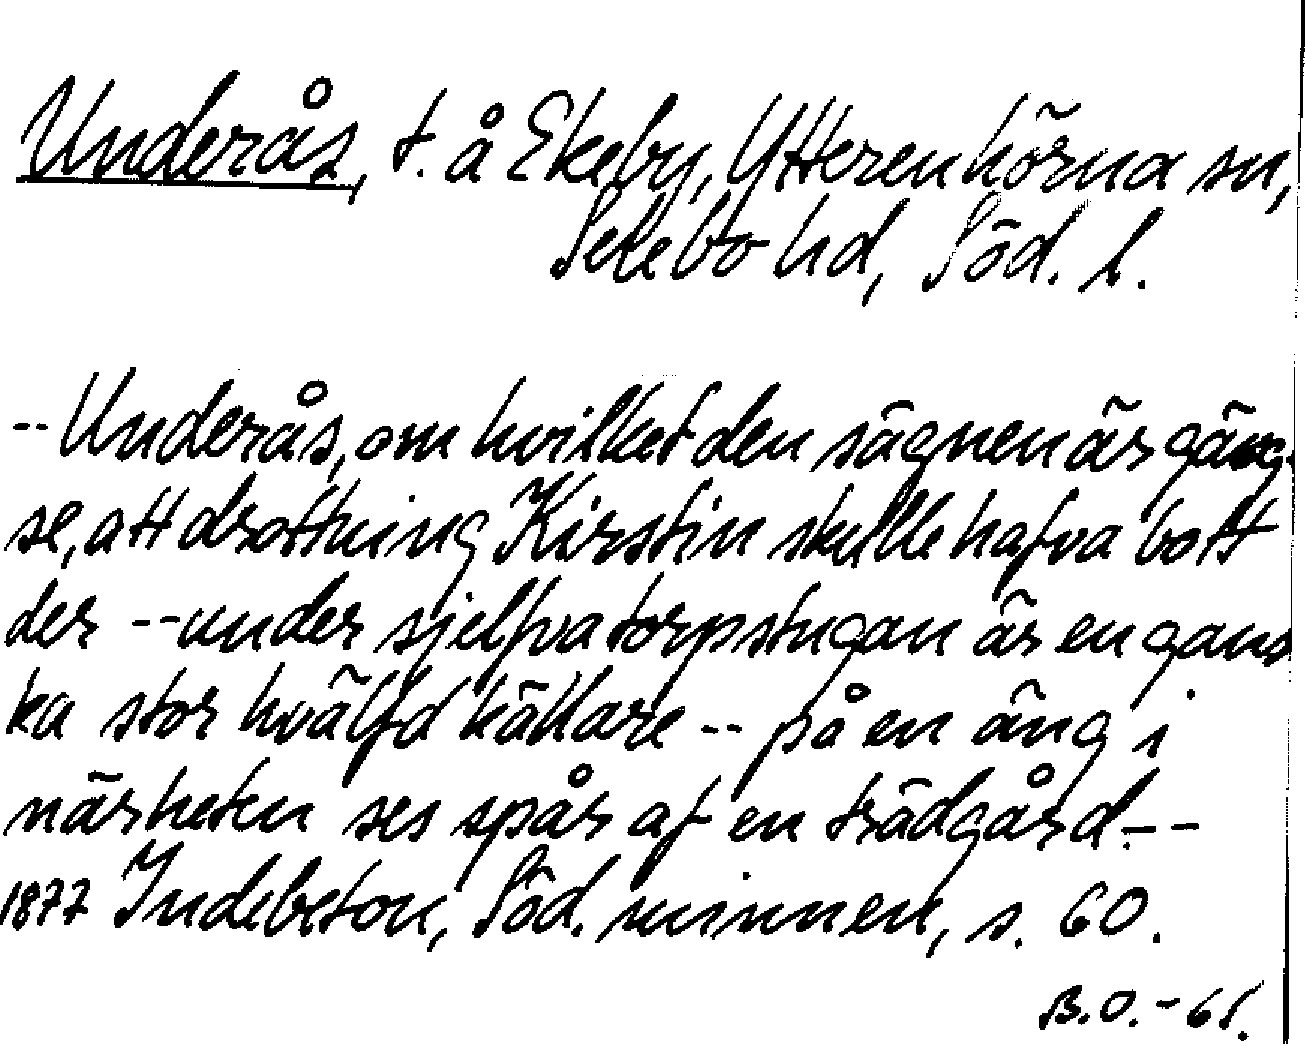 Underås, t. å Ekeby, Ytterenhörna sn,
Selebo hd, Söd. l.
-- Underås, om hvilket den sägnen är gäng-
se, att drottning Kirstin skulle hafva bott
der -- under sjelfva torpstugan är en gans
ka stor hvälfd källare -- på en äng i
närheten ses spår af en trädgård. --
1877 Indebetou, Söd. minnen, s. 60.
B.O. - 61.